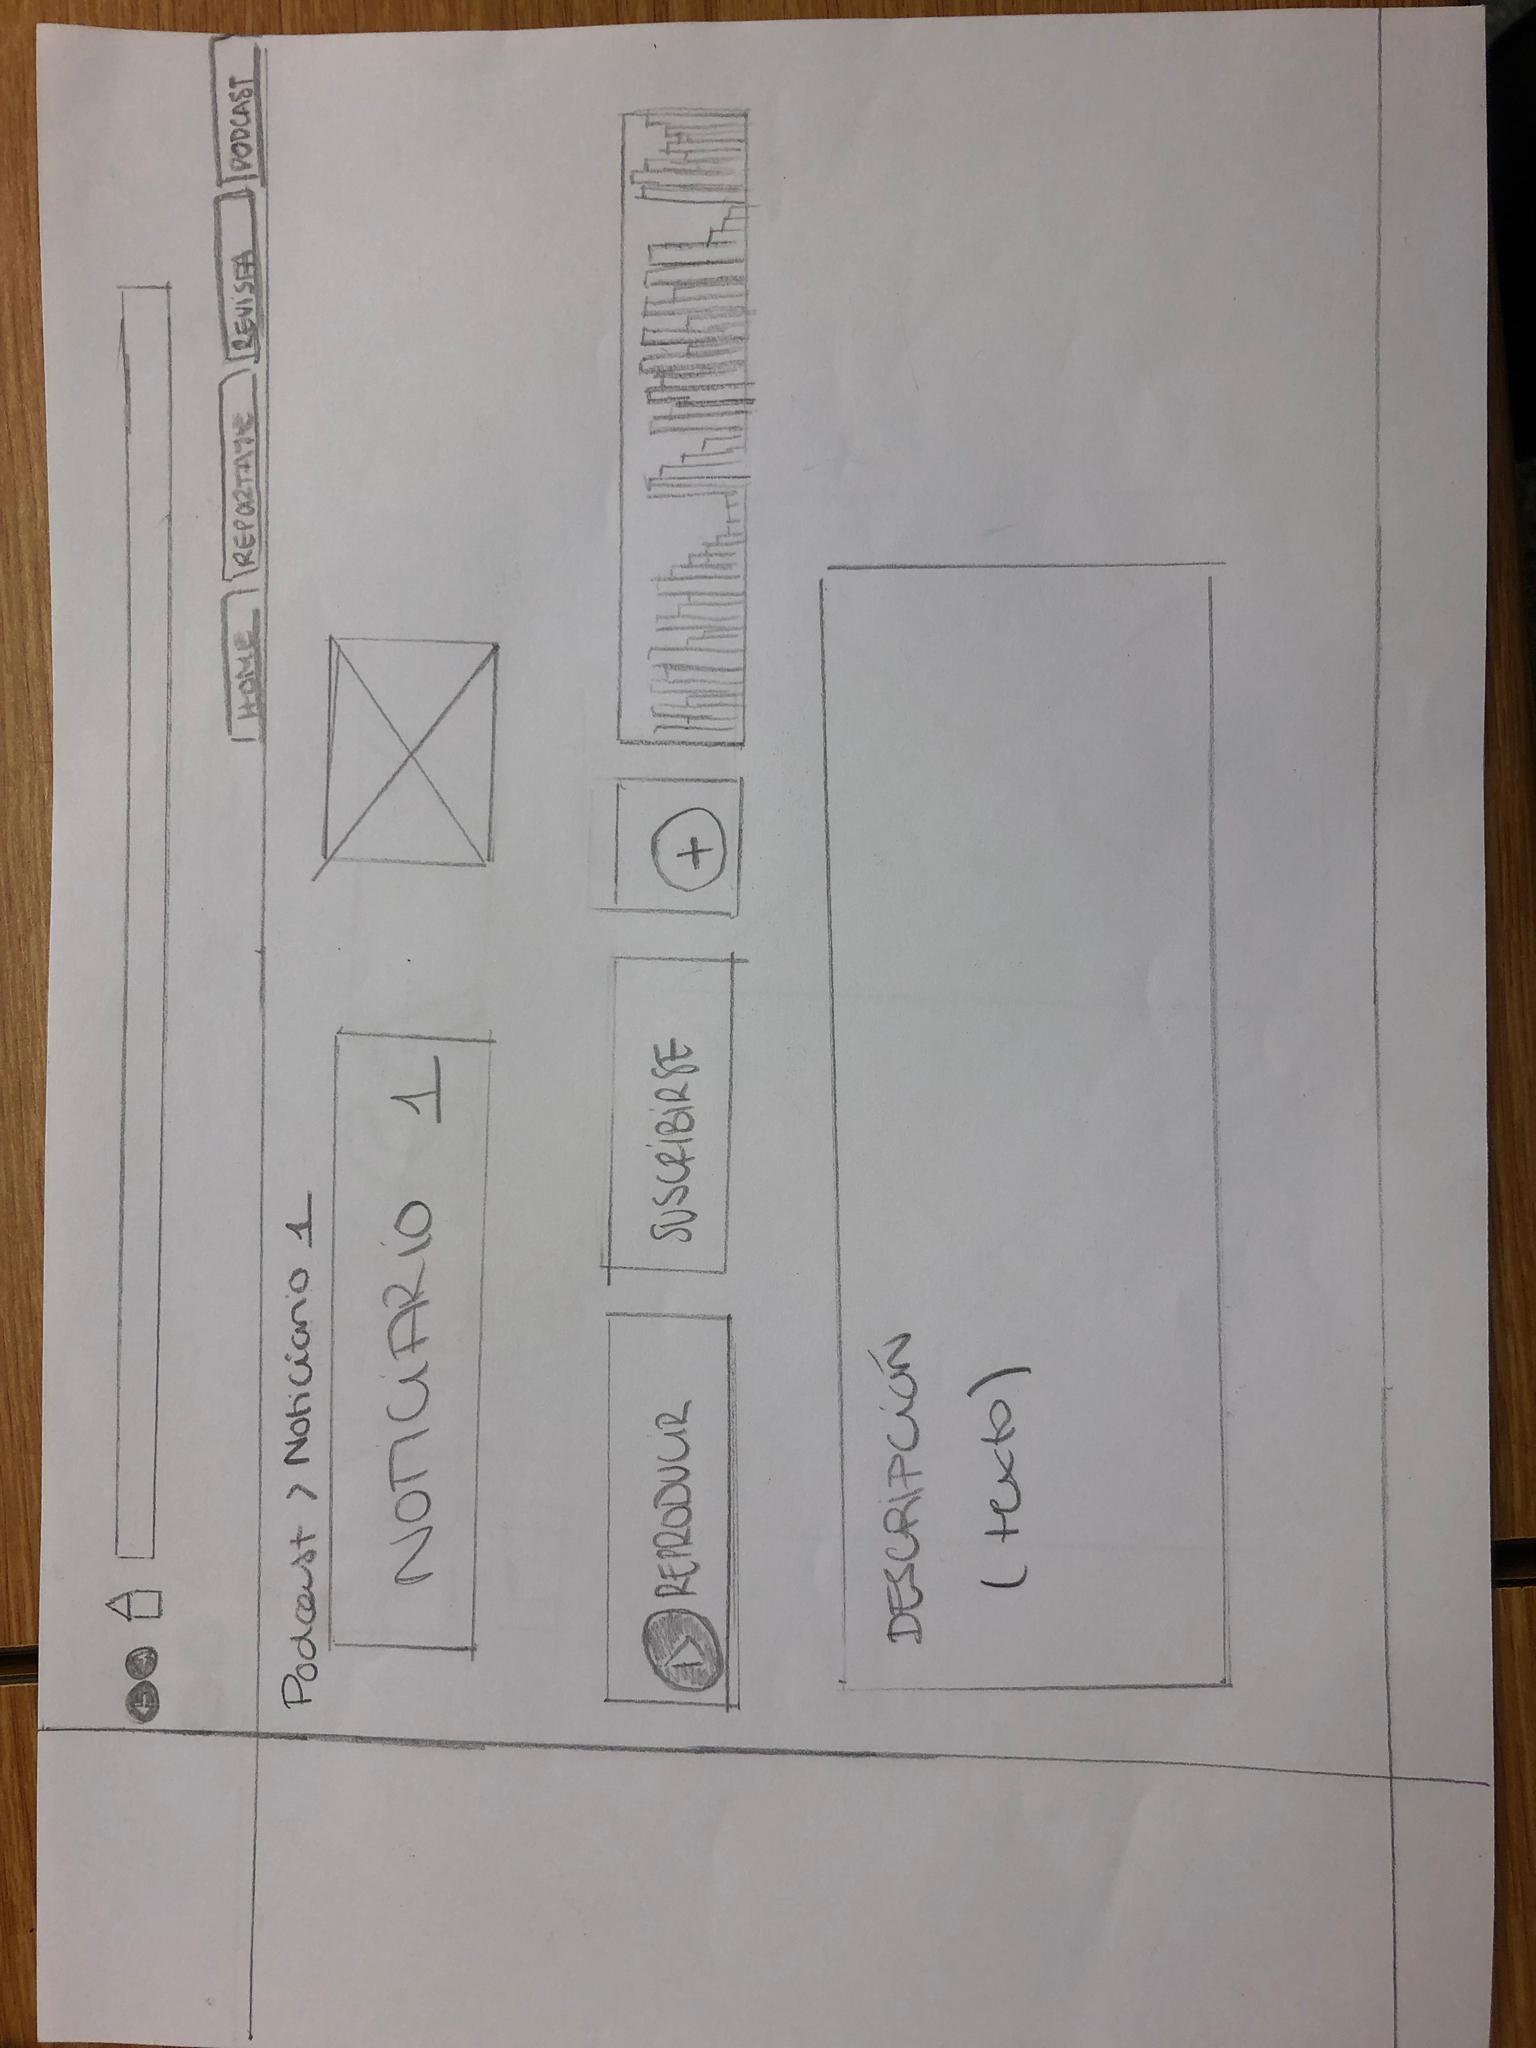 HOME REPORTAJE REVISTA PODCAST
Podcast > Noticiario 1
NOTICIARIO 1
REPRODUCIR SUSCRIBIRSE +
DESCRIPCIÓN
(texto)